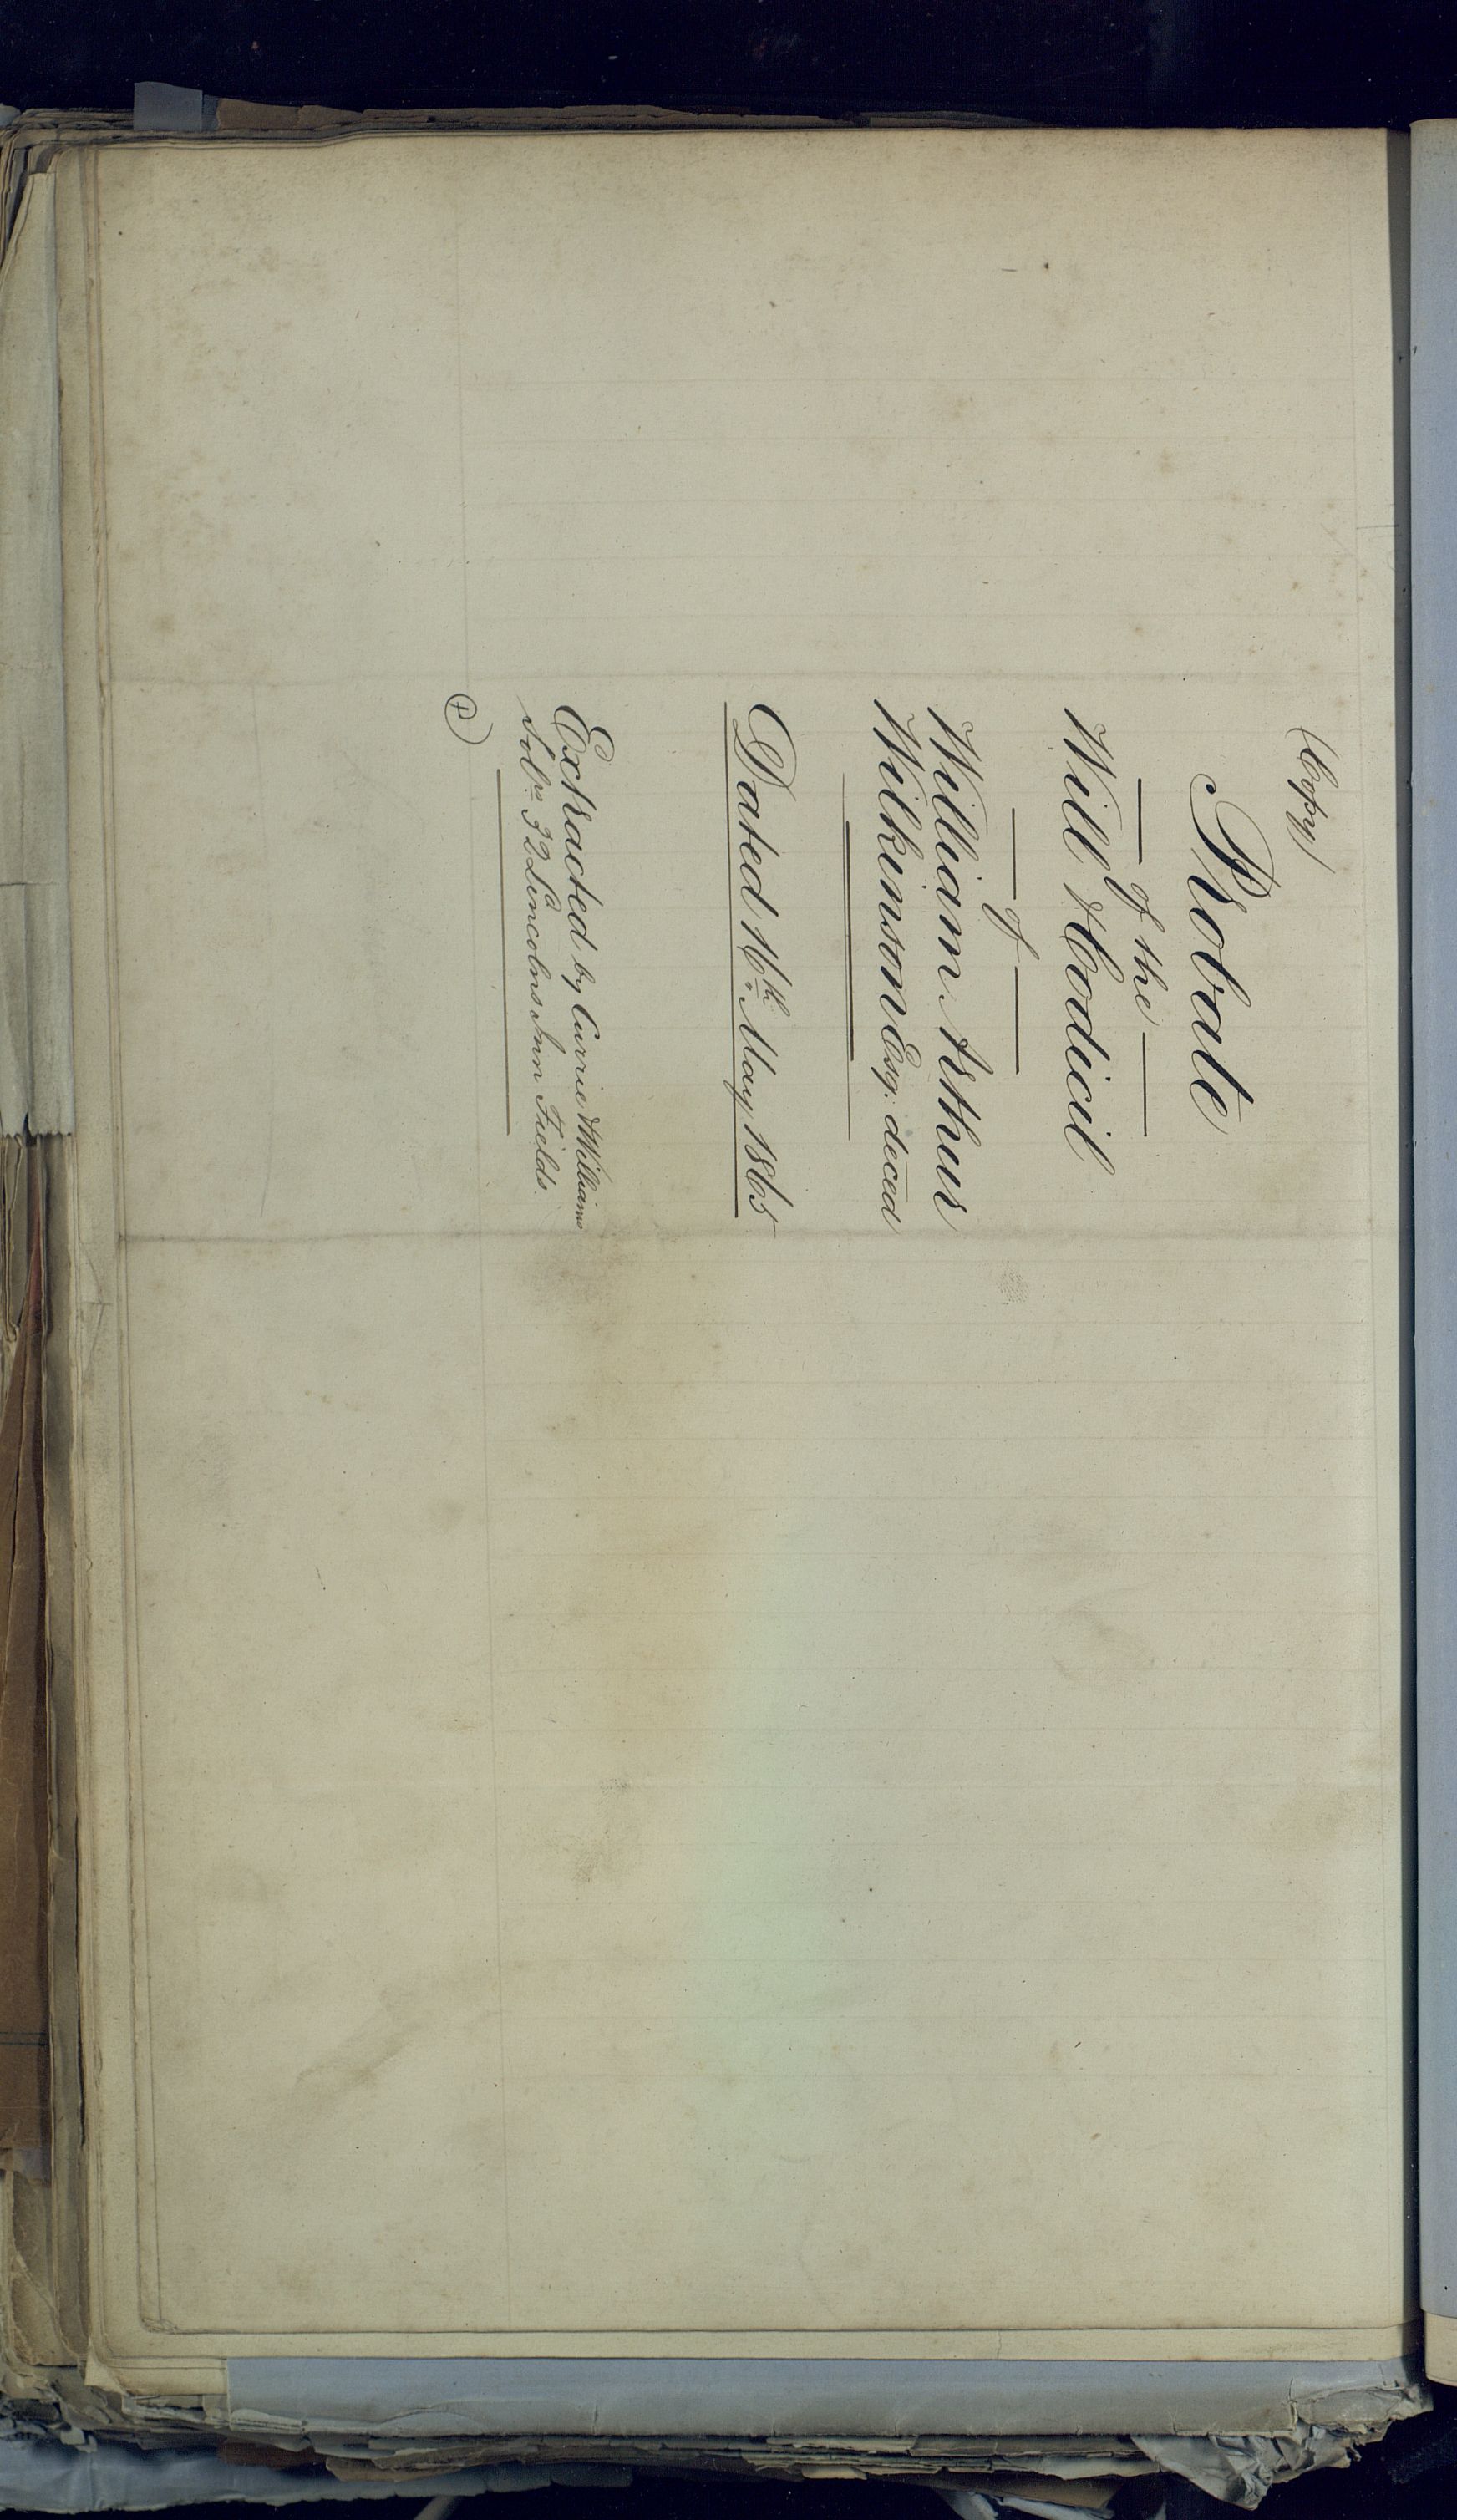 (Copy)
Probate
of the
Will & Codicil
of
William Arthur
Wilkinson Esq. deced
Dated 16th May 1865
Extracted by Currie & Williams
Solrs 32 Lincolns Inn Fields